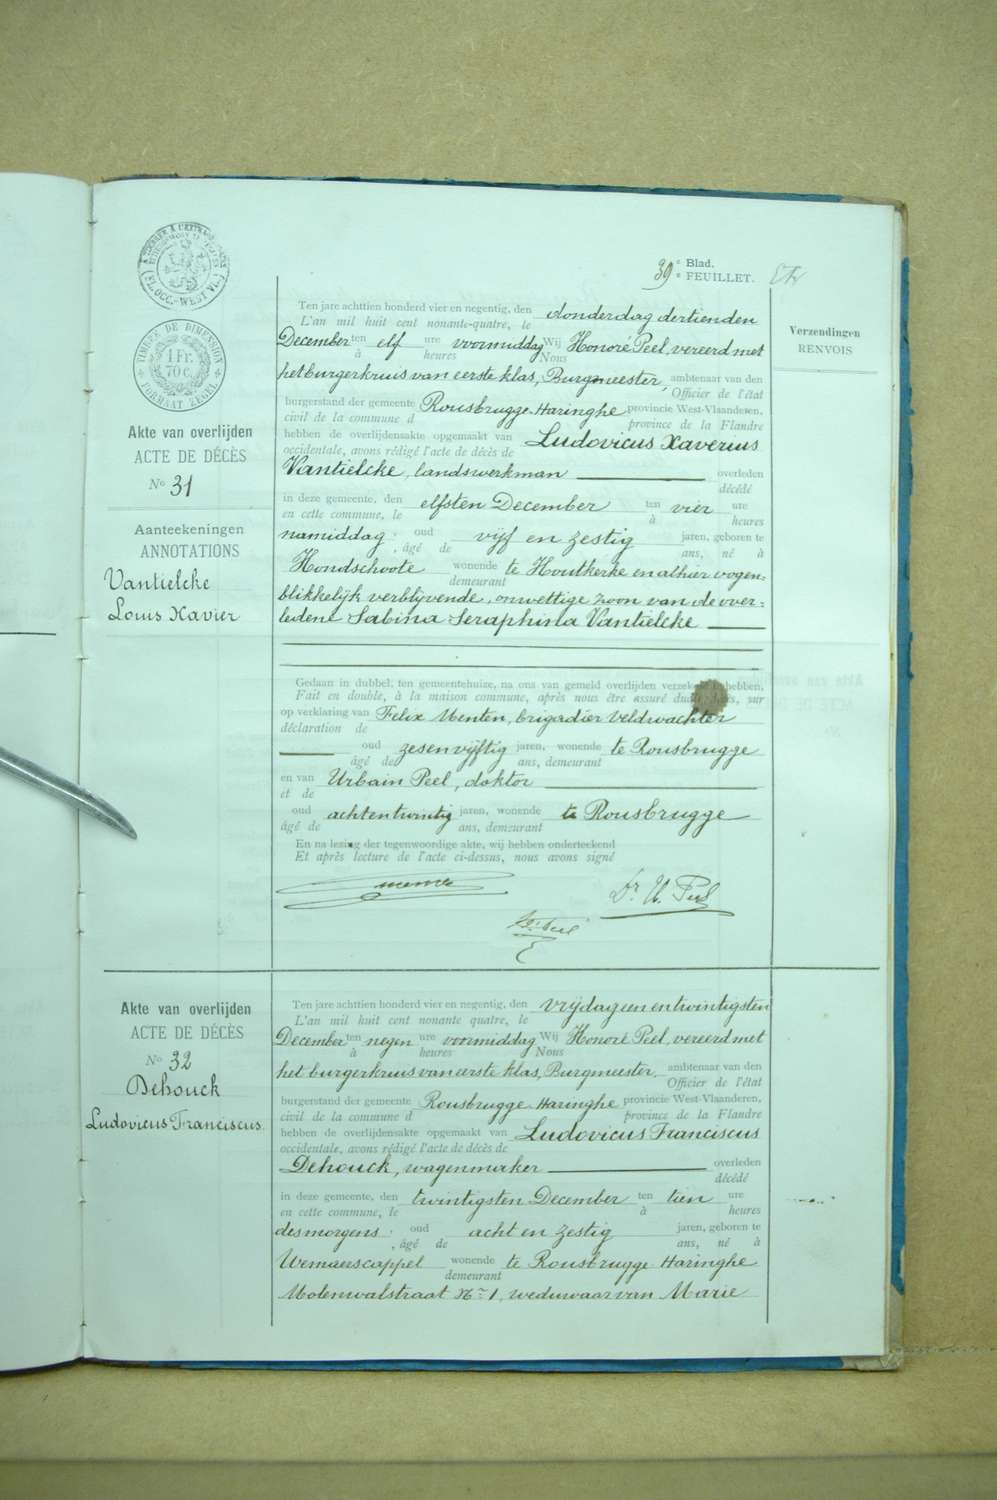 39e Blad.
FEUILLET.
Verzendingen
RENVOIS
TIMBRE DE DIMENSION
1 Fr.
70 c.
FORMAAT ZEGEL
Akte van overlijden
ACTE DE DÉCÈS
No 31
Aanteekeningen
ANNOTATIONS
Vantielcke
Louis Xavier
Ten jare achttien honderd vier en negentig, den donderdag dertienden
L'an mil huit cent nonante-quatre, le
December ten elf ure voormiddag Wij Honoré Peel, vereerd met
à heures Nous
het burgerkruis van eerste klas, Burgmeester, ambtenaar van den
Officier de l'état
burgerstand der gemeente Rousbrugge-Haringhe provincie West-Vlaanderen,
civil de la commune d province de la Flandre
hebben de overlijdensakte opgemaakt van Ludovicus Xaverius
occidentale, avons rédigé l'acte de décès de
Vantielcke, landswerkman overleden
décédé
in deze gemeente, den elfsten December ten vier ure
en cette commune, le à heures
namiddag oud vijf en zestig jaren, geboren te
, âgé de ans, né à
Hondschoote wonende te Houtkerke en alhier oogen-
demeurant
blikkelijk verblijvende, onwettige zoon van de over-
ledene Sabina Seraphina Vantielcke
Gedaan in dubbel, ten gemeentehuize, na ons van gemeld overlijden verzekerd te hebben,
Fait en double, à la maison commune, après nous être assuré dudit décès, sur
op verklaring van Felix Menten, brigadier veldwachter
déclaration de
oud zesenvijftig jaren, wonende te Rousbrugge
âgé de ans, demeurant
en van Urbain Peel, doktor
et de
oud achtentwintig jaren, wonende te Rousbrugge
âgé de ans, demeurant
En na lezing der tegenwoordige akte, wij hebben onderteekend
Et après lecture de l'acte ci-dessus, nous avons signé
Dr. U. Peel
Akte van overlijden
ACTE DE DÉCÈS
No 32
Dehouck
Ludovicus Franciscus
Ten jare achttien honderd vier en negentig, den vrijdag een en twintigsten
L'an mil huit cent nonante quatre, le
December ten negen ure voormiddag Wij Honoré Peel, vereerd met
à heures Nous
het burgerkruis van eerste klas, Burgmeester, ambtenaar van den
Officier de l'état
burgerstand der gemeente Rousbrugge-Haringhe provincie West-Vlaanderen,
civil de la commune d province de la Flandre
hebben de overlijdensakte opgemaakt van Ludovicus Franciscus
occidentale, avons rédigé l'acte de décès de
Dehouck, wagenmaker overleden
décédé
in deze gemeente, den twintigsten December ten tien ure
en cette commune, le à heures
des morgens oud acht en zestig jaren, geboren te
, âgé de ans, né à
Wemaerscappel wonende te Rousbrugge-Haringhe
demeurant
Molenwalstraat No 1, weduwaar van Marie